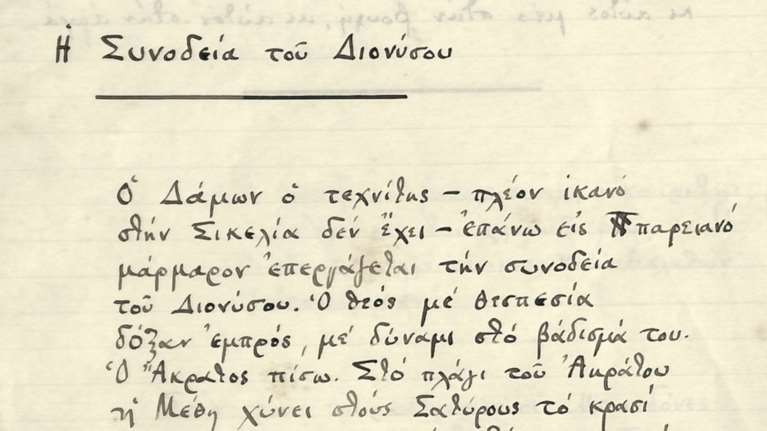 Ἡ Συνοδεία τοῦ Διονύσου
Ὁ Δάμων ὁ τεχνίτης – πλέον ἱκανό
στὴν Σικελία δὲν ἔχει – ἐπάνω εἰς παρειανό
μάρμαρον ἐπεργάζεται τὴν συνοδεία
τοῦ Διονύσου. Ὁ θεὸς μὲ θεσπεσία
δόξαν ἐμπρός, μὲ δύναμι στὸ βάδισμά του.
Ὁ Ἄκρατος πίσω. Στὸ πλάγι τοῦ Ἀκράτου
ἡ Μέθη χύνει στοὺς Σατύρους τὸ κρασὶ